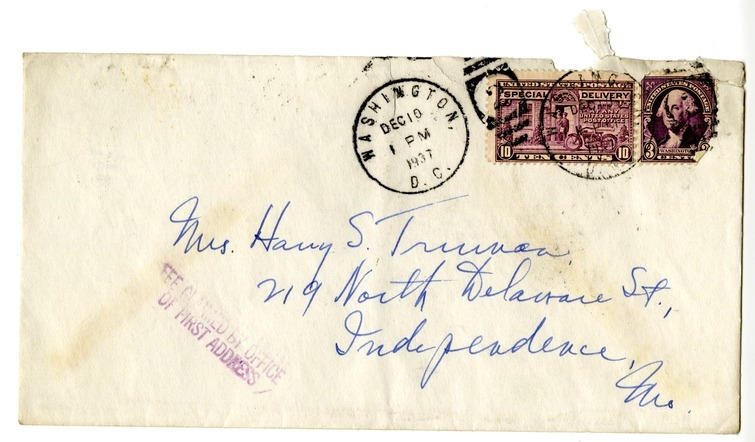 WASHINGTON,
DEC 19
1 PM
1937
D. C.
UNITED STATES POSTAGE
SPECIAL DELIVERY
AT ANY
UNITED STATES
POST OFFICE
10 TEN CENTS 10
UNITED STATES POSTAGE
WASHINGTON
3 CENTS
Mrs. Harry S. Truman
219 North Delaware St.,
Independence,
Mo.
FEE CLAIMED BY OFFICE
OF FIRST ADDRESS